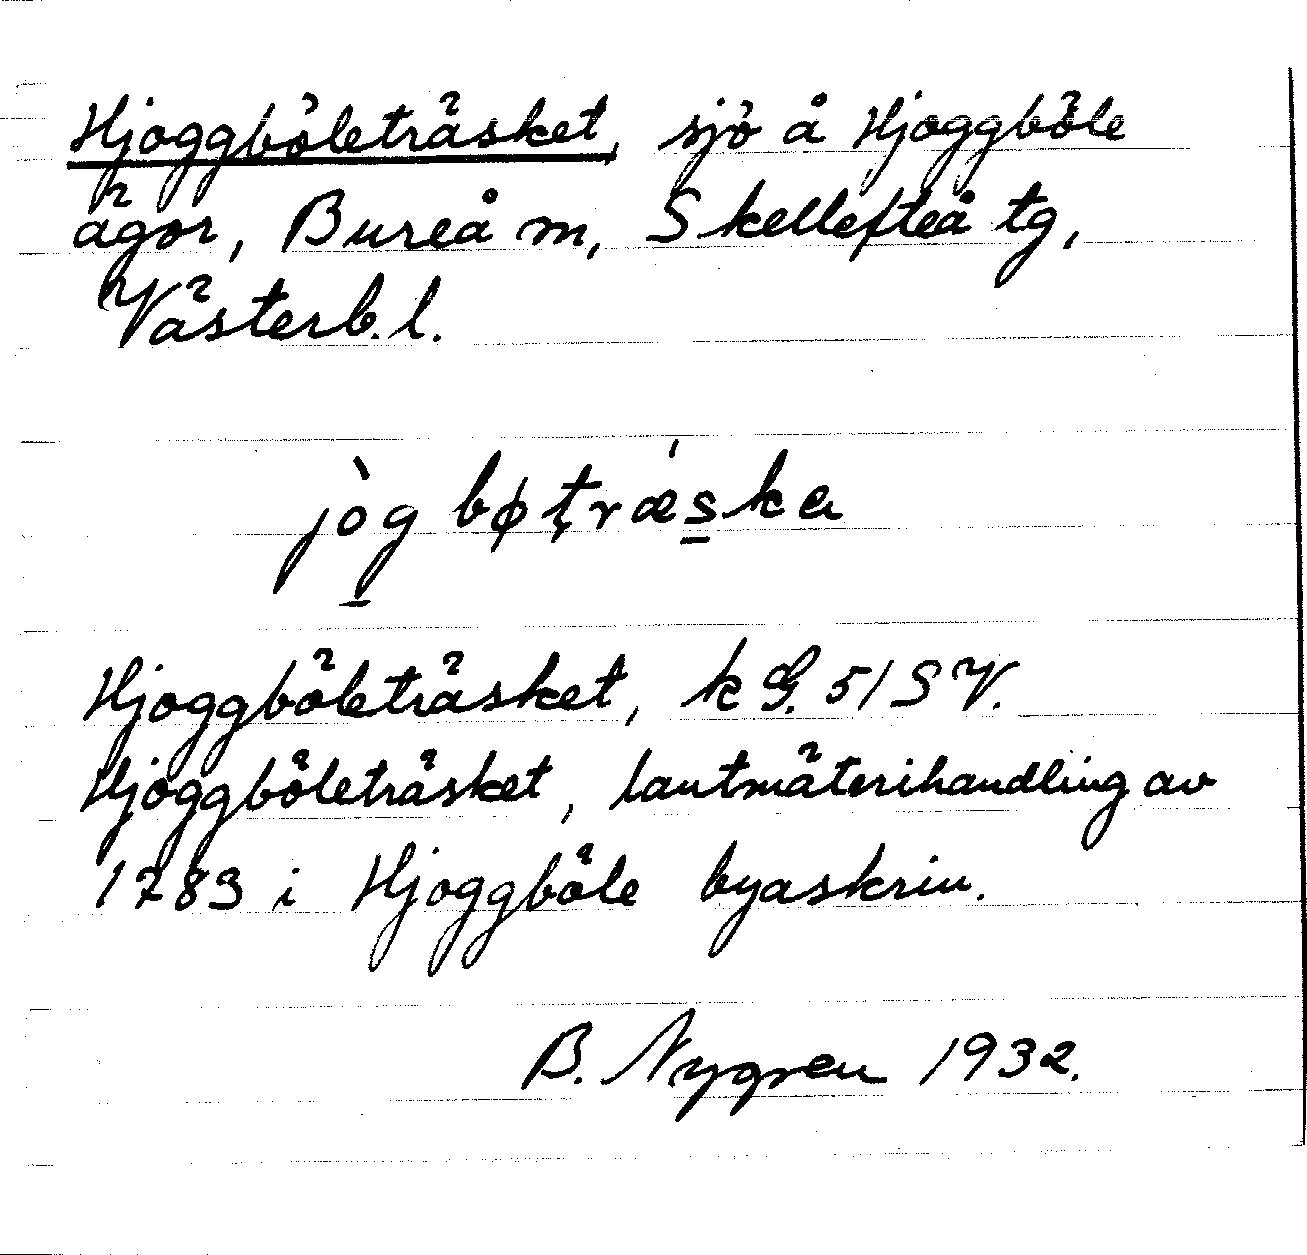 Hjoggböleträsket, sjö å Hjoggböle
ägor, Bureå m, Skellefteå tg,
Västerb. l.
jò̀g bøtrǽska
Hjoggböleträsket, k G. 51 SV.
Hjoggböleträsket, lantmäterihandling av
1783 i Hjoggböle byaskrin.
B. Nygren 1932.